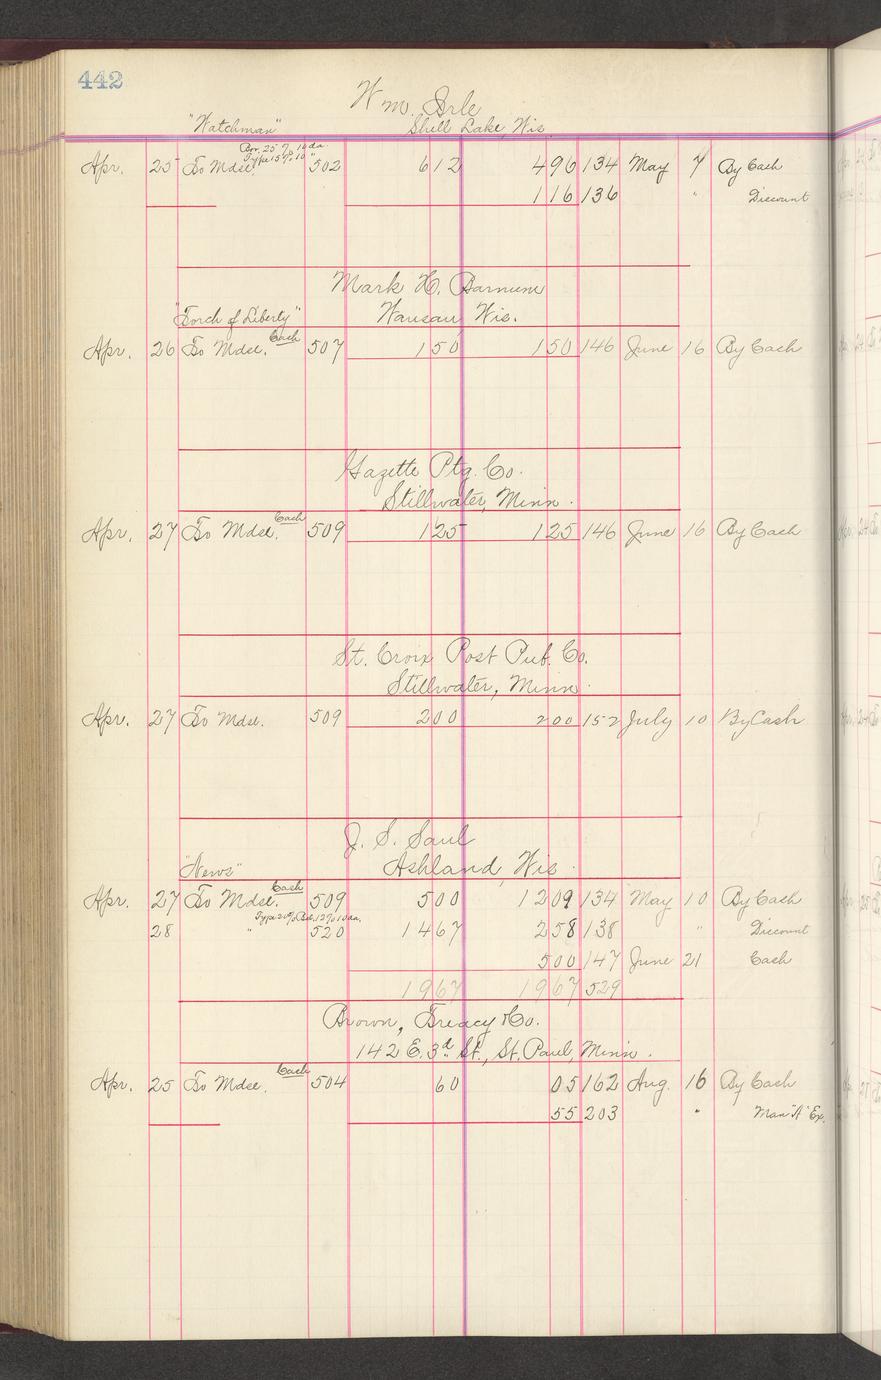 442
Wm. Irle
"Watchman" Shell Lake, Wis.
Bor. 25% 10 da.
Type 15% 10 "
Apr. 25 To Mdse. 502 612 496 134 May 7 By Cash
116 136 " Discount
Mark H. Barnum
"Torch of Liberty" Wausau, Wis.
Apr. 26 To Mdse. Cash 507 150 150 146 June 16 By Cash
Gazette Ptg. Co.
Stillwater, Minn.
Apr. 27 To Mdse. Cash 509 125 125 146 June 16 By Cash
St. Croix Post Pub. Co.
Stillwater, Minn.
Apr. 27 To Mdse. 509 200 200 152 July 10 By Cash
J. S. Saul
"News" Ashland, Wis.
Apr. 27 To Mdse. Cash 509 500 1209 134 May 10 By Cash
Type 20% 12% 10 da.
28 " 520 1467 258 138 " Discount
500 147 June 21 Cash
1967 1967 529
Brown, Treacy & Co.
142 E. 3d St., St. Paul, Minn.
Apr. 25 To Mdse. Cash 504 60 05 162 Aug. 16 By Cash
55 203 " Man "A" Ex.